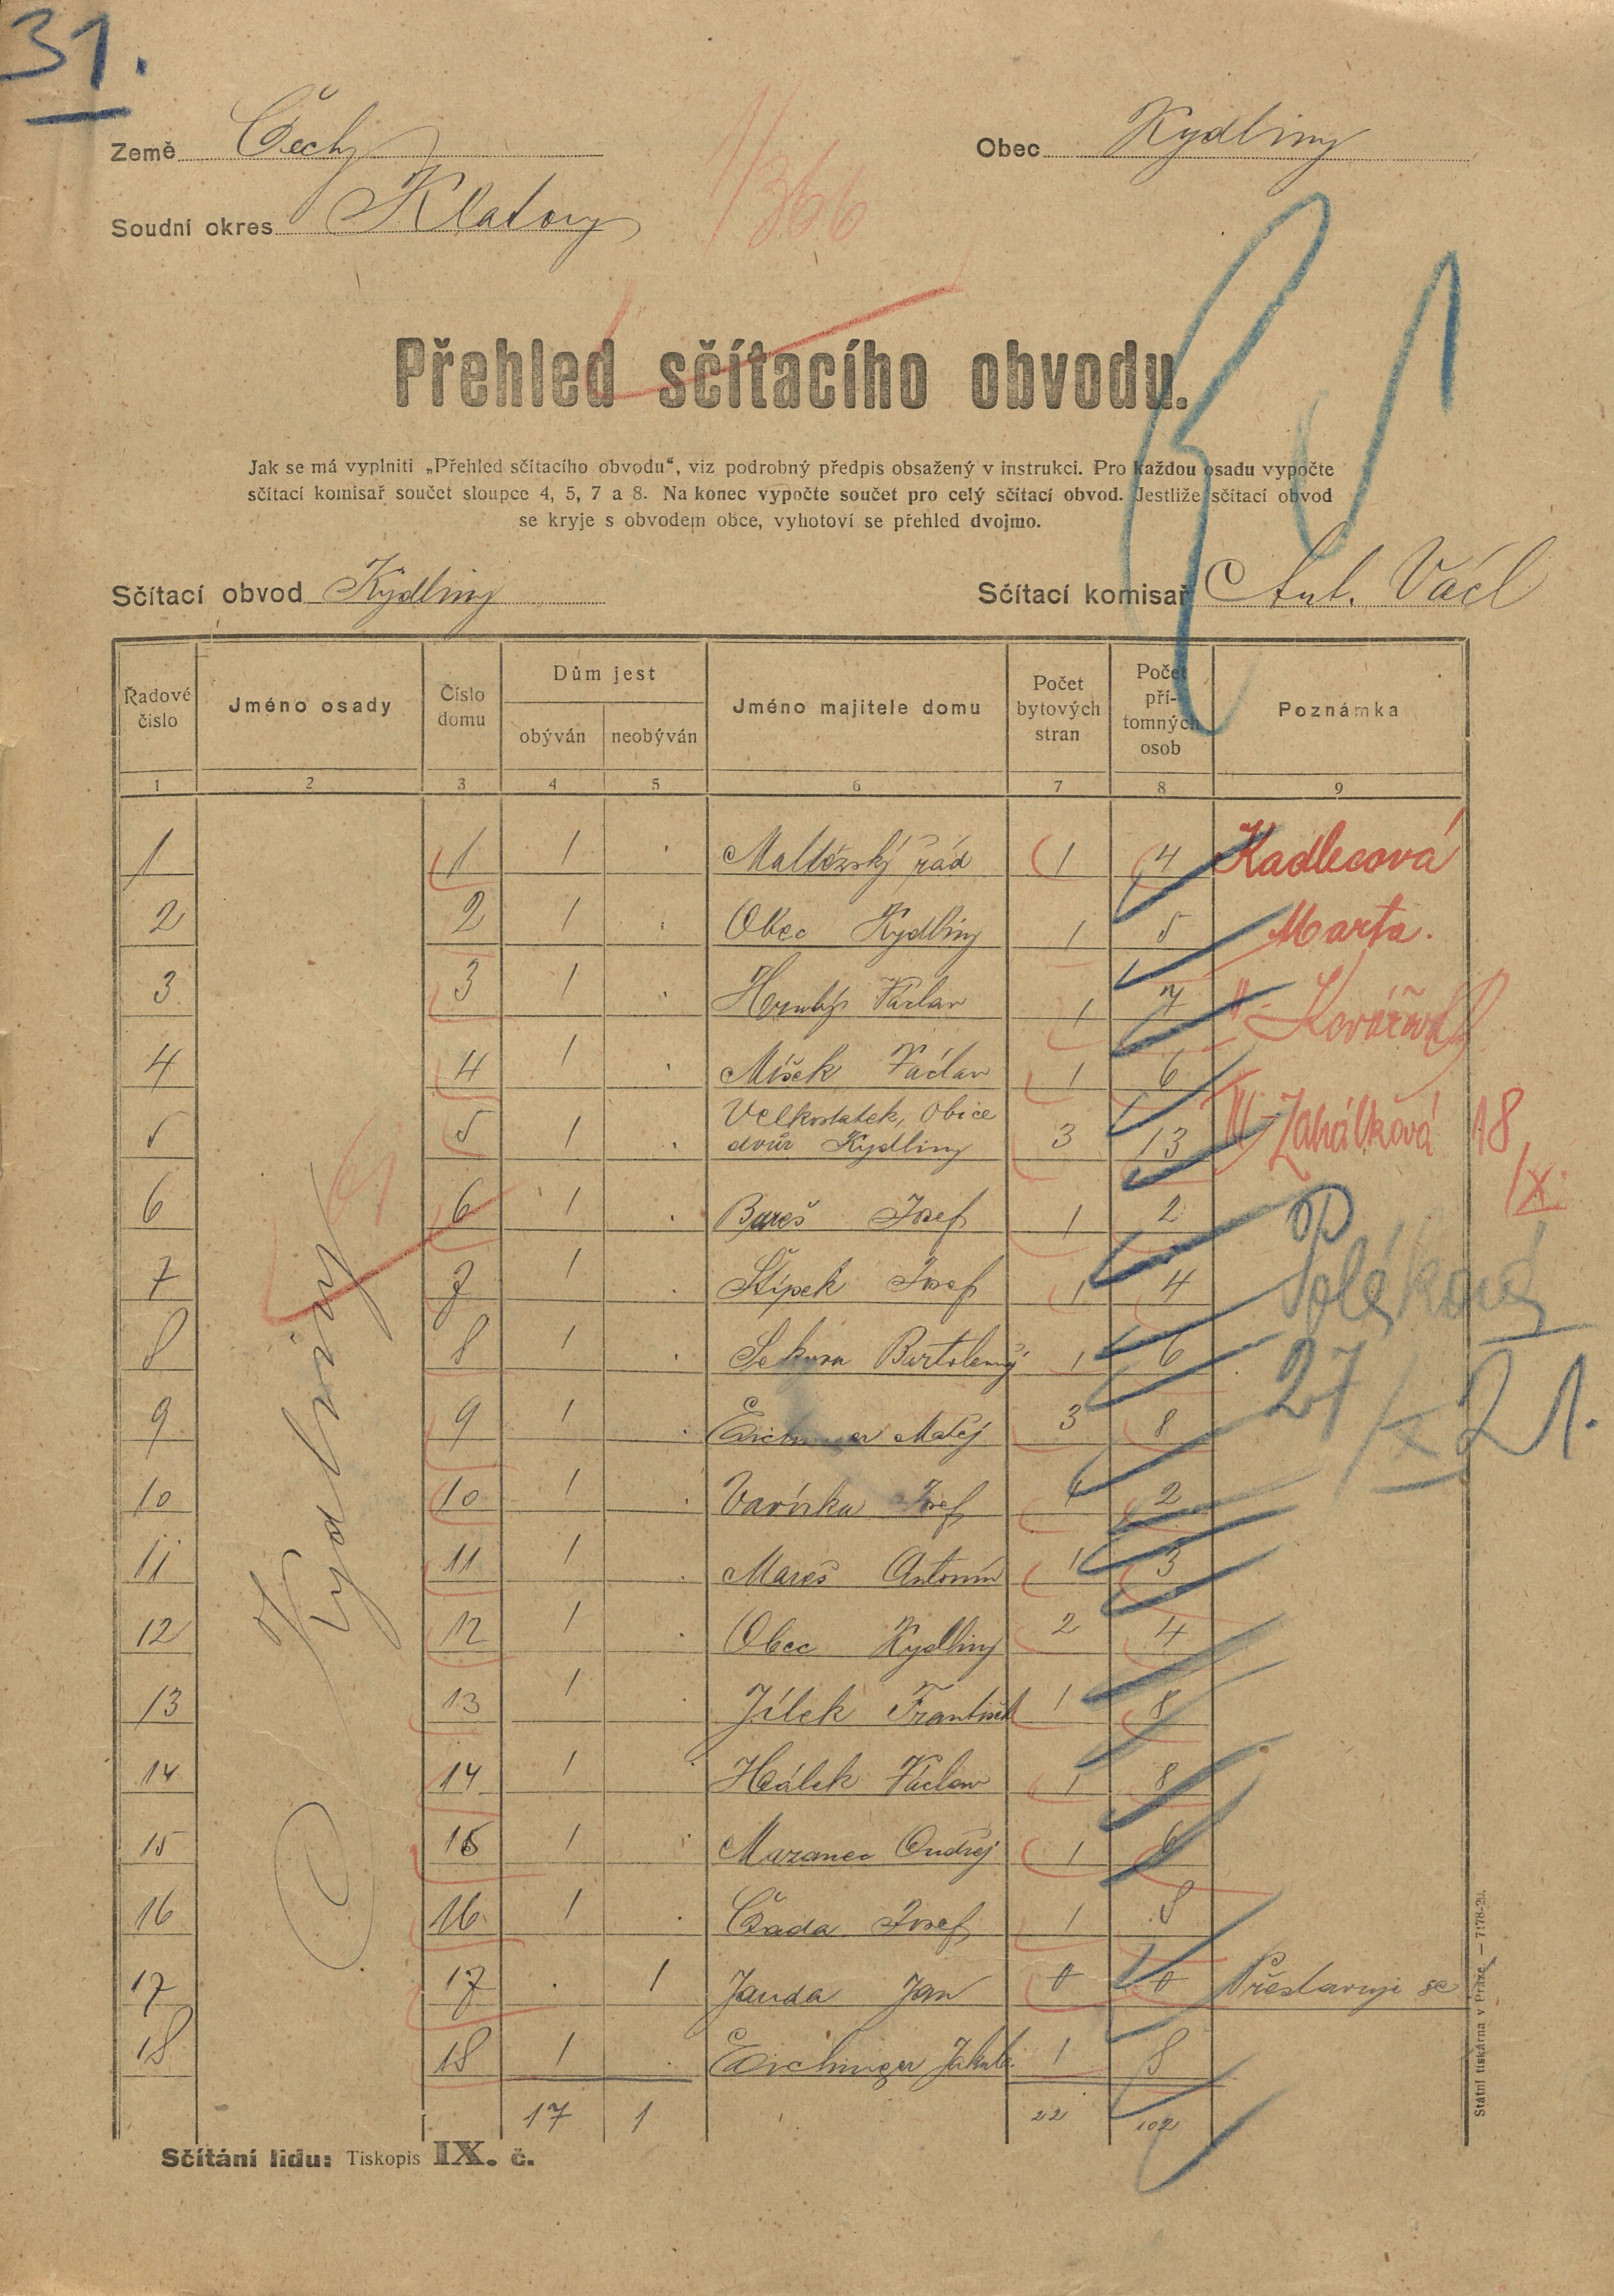 31.
Země Čechy
Obec Kydliny
Soudní okres Klatovy
1/366
Přehled sčítacího obvodu.
Jak se má vyplniti „Přehled sčítacího obvodu“, viz podrobný předpis obsažený v instrukci. Pro každou osadu vypočte
sčítací komisař součet sloupce 4, 5, 7 a 8. Na konec vypočte součet pro celý sčítací obvod. Jestliže sčítací obvod
se kryje s obvodem obce, vyhotoví se přehled dvojmo.
Sčítací obvod Kydliny
Sčítací komisař Ant. Václ
Řadové číslo Jméno osady Číslo domu Dům jest obýván neobýván Jméno majitele domu Počet bytových stran Počet přítomných osob Poznámka
1 2 3 4 5 6 7 8 9
Kydliny
1 1 1 . Maltézský řád 1 4 Kadlecová
2 2 1 . Obec Kydliny 1 5 Marta.
3 3 1 . Hrubý Václav 1 7 II - Kovářová
4 4 1 . Míšek Václav 1 6
5 5 1 . Velkostatek, Obice dvůr Kydliny 3 13 III - Zahálková 18/IX.
6 6 1 . Bureš Josef 1 2
7 7 1 . Štípek Josef 1 4 Poláková
8 8 1 . Sekyra Bartoloměj 1 6
9 9 1 . Eichinger Matěj 3 8 27/IX 21.
10 10 1 . Vavřička Josef 1 2
11 11 1 . Mareš Antonín 1 3
12 12 1 . Obec Kydliny 2 4
13 13 1 . Jílek František 1 8
14 14 1 Hálek Václav 1 8
15 15 1 . Mazanec Ondřej 1 6
16 16 1 . Čada Josef 1 8
17 17 . 1 Janda Jan 0 0 Přestavuje se
18 18 1 . Eichinger Jakub. 1 8
17 1 22 102
Sčítání lidu: Tiskopis IX. č.
Státní tiskárna v Praze. — 7178-20.